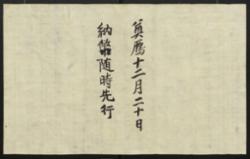 奠鴈十二月二十日
納幣隨時先行